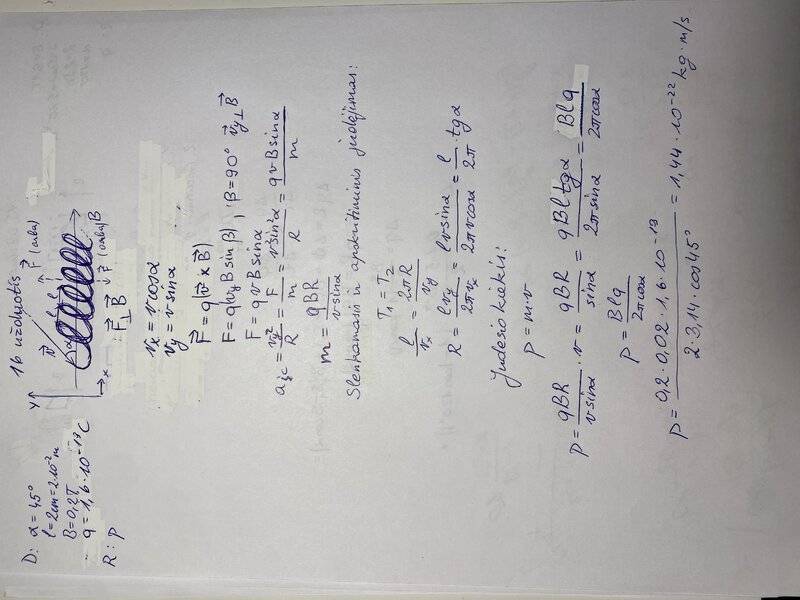 16 uždavinys
D: α = 45°
l = 2cm = 2·10⁻² m
B = 0,2T
q = 1,6·10⁻¹⁹ C
R: P
Y
x
B
F⃗ ⊥ B⃗
vₓ = v cosα
v_y = v sinα
F⃗ = q(v⃗ × B⃗)
F = q(v_y B sinβ) , β = 90° v⃗_y ⊥ B⃗
F = qvB sinα
a_įc = v_y²/R = F/m = v sin²α/R = qvB sinα/m
m = qBR/v sinα
Slenkamasis ir apskritiminis judėjimas:
T₁ = T₂
l/vₓ = 2πR/v_y
R = l v_y/2πvₓ = l v sinα/2πv cosα = l/2π · tgα
Judesio kiekis:
P = m·v
P = qBR/v sinα · v = qBR/sinα = qBl tgα/2π sinα = Blq/2π cosα
P = Blq/2π cosα
P = 0,2·0,02·1,6·10⁻¹⁹/2·3,14·cos45° = 1,44·10⁻²² kg·m/s